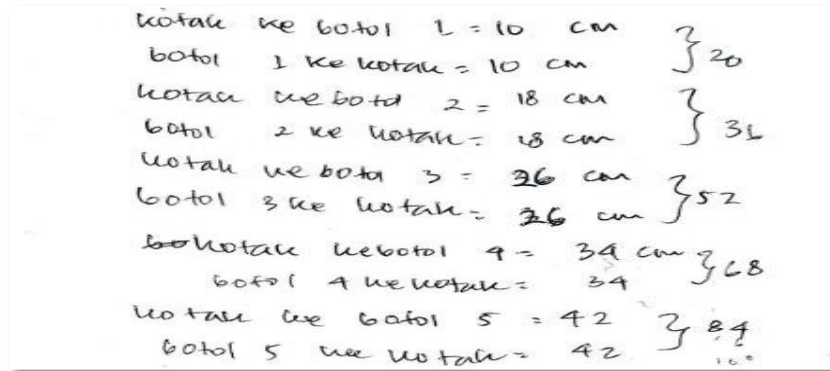 kotak ke botol 1 = 10 cm
botol 1 ke kotak = 10 cm } 20
kotak ke botol 2 = 18 cm
botol 2 ke kotak = 18 cm } 36
kotak ke botol 3 = 26 cm
botol 3 ke kotak = 26 cm } 52
kotak ke botol 4 = 34 cm
botol 4 ke kotak = 34 } 68
kotak ke botol 5 = 42
botol 5 ke kotak = 42 } 84